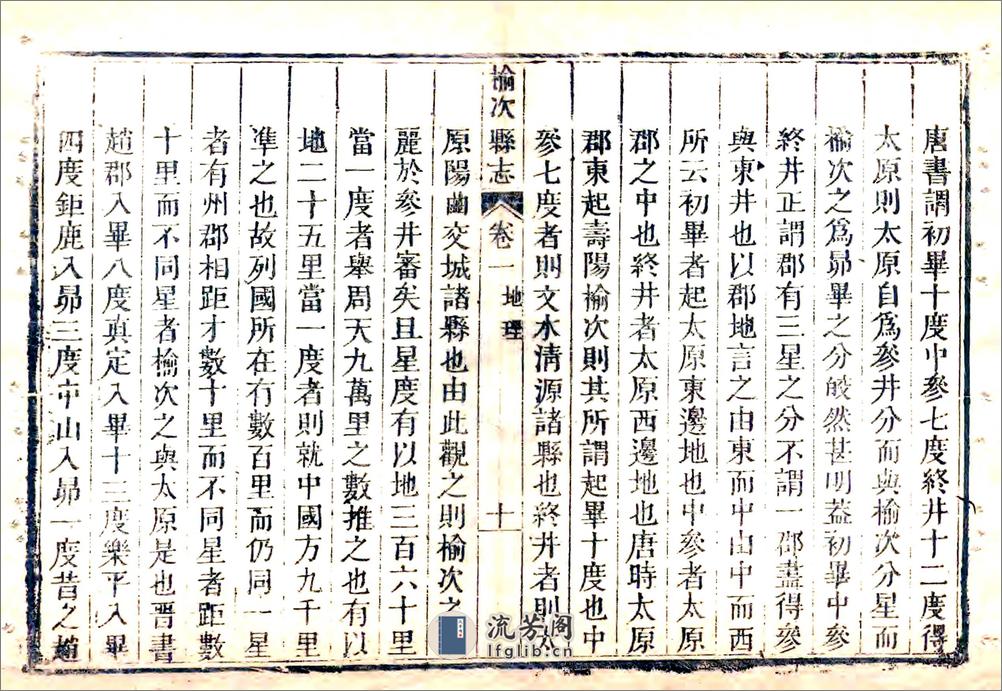 唐書謂初畢十度中參七度終井十二度得
太原則太原自爲參井分而與榆次分星而
榆次之爲昴畢之分皎然甚明蓋初畢中參
終井正謂郡有三星之分不謂一郡盡得參
與東井也以郡地言之由東而中由中而西
所云初畢者起太原東邊地也中參者太原
郡之中也終井者太原西邊地也唐時太原
郡東起壽陽榆次則其所謂起畢十度也中
參七度者則文水清源諸縣也終井者則太
榆次縣志 卷一 地理 十
原陽曲交城諸縣也由此觀之則榆次之
麗於參井審矣且星度有以地三百六十里
當一度者舉周天九萬里之數推之也有以
地二十五里當一度者則就中國方九千里
準之也故列國所在有數百里而仍同一星
者有州郡相距才數十里而不同星者距數
十里而不同星者榆次之與太原是也晉書
趙郡入畢八度真定入畢十三度樂平入畢
四度鉅鹿入昴三度中山入昴一度昔之趙
流芳阁
lfglib.cn.com